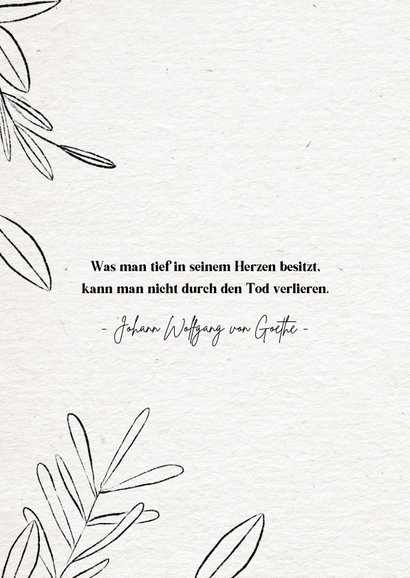 Was man tief in seinem Herzen besitzt,
kann man nicht durch den Tod verlieren.
- Johann Wolfgang von Goethe -